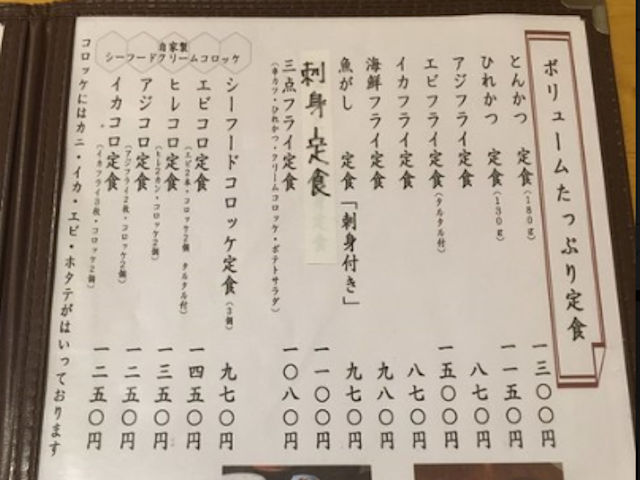 ボリュームたっぷり定食
とんかつ 定食(180g) 一三〇〇円
ひれかつ 定食(130g) 一一五〇円
アジフライ定食 八七〇円
エビフライ定食(タルタル付) 一五〇〇円
イカフライ定食 八七〇円
海鮮フライ定食 九八〇円
魚がし 定食「刺身付き」 九七〇円
刺身定食 一一〇〇円
三点フライ定食 一〇八〇円
(串カツ・ひれかつ・クリームコロッケ・ポテトサラダ)
自家製
シーフードクリームコロッケ
シーフードコロッケ定食(3個) 九七〇円
エビコロ定食 一四五〇円
(エビ2本・コロッケ2個 タルタル付)
ヒレコロ定食 一三五〇円
(ヒレ2カン・コロッケ2個)
アジコロ定食 一二五〇円
(アジフライ2枚・コロッケ2個)
イカコロ定食 一二五〇円
(イカフライ3枚・コロッケ2個)
コロッケにはカニ・イカ・エビ・ホタテがはいっております